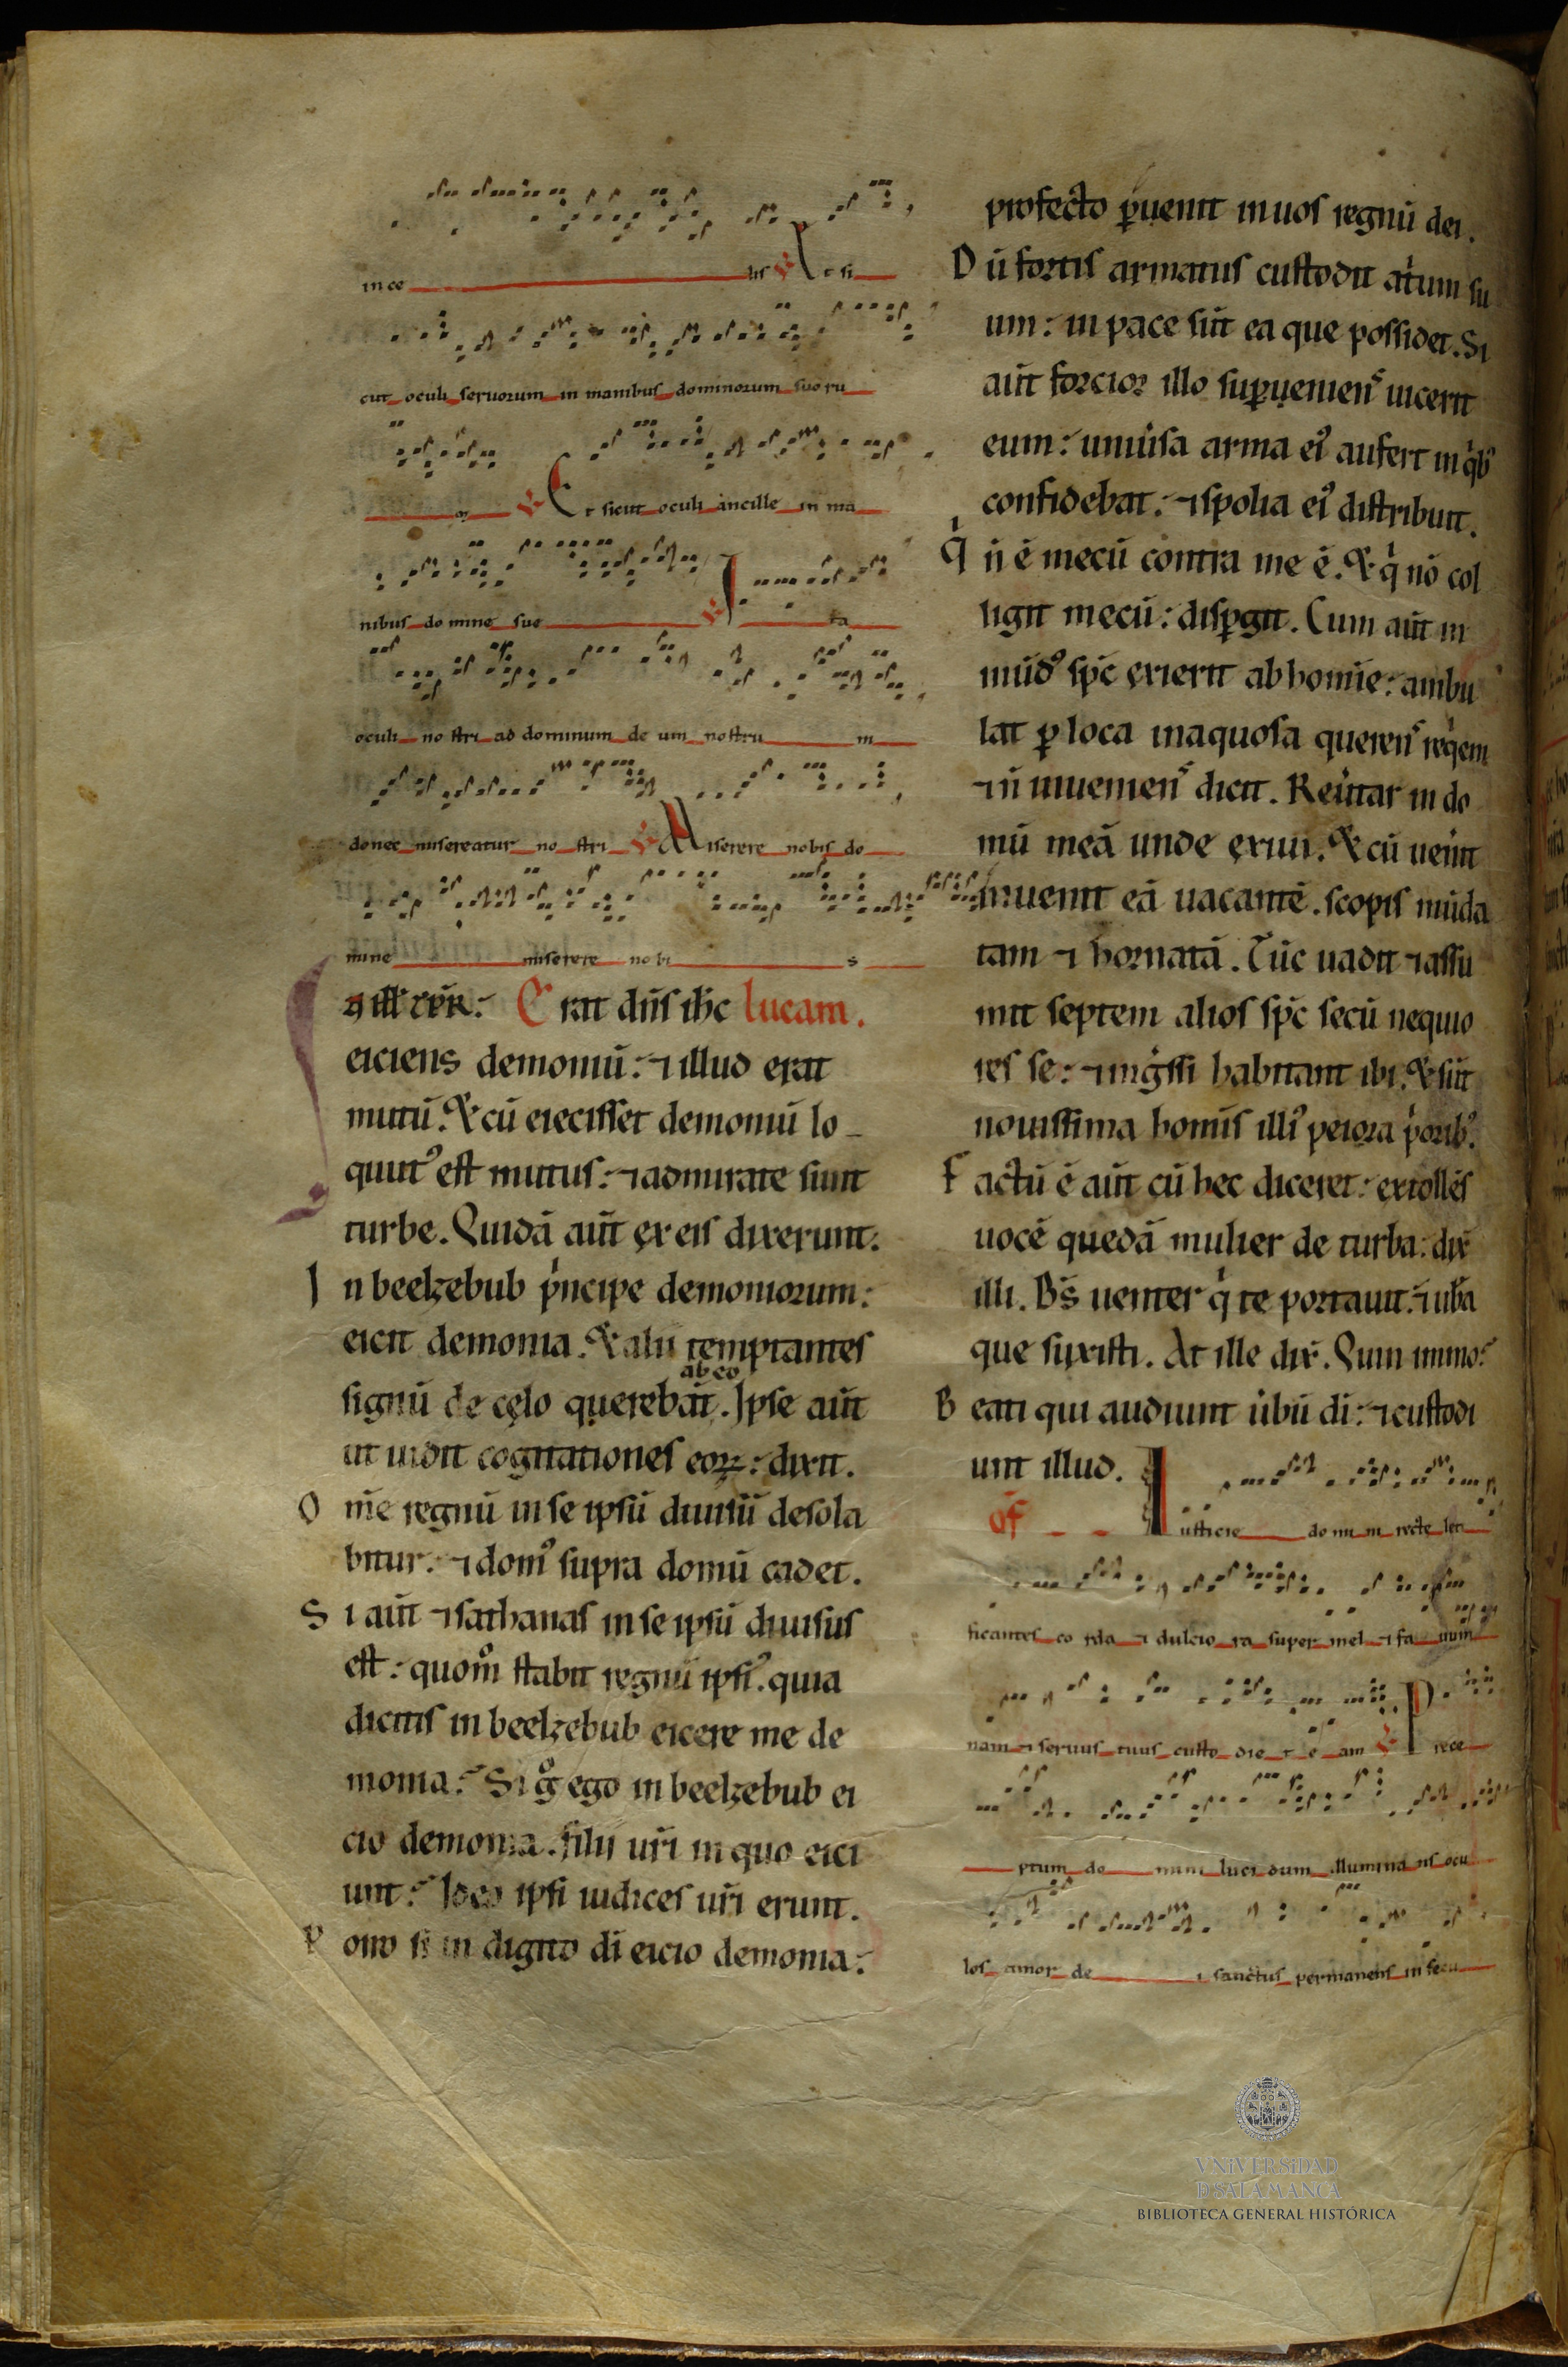 in ce lis ℣ Et si
cut oculi seruorum in manibus dominorum suoru
m ℣ Et sicut oculi ancille in ma
nibus do mine sue ℣ I ta
oculi no stri ad dominum de um nostru m
donec misereatur no stri ℣ Miserere nobis do
mine miserere no bi s
Erat dn̄s ih̄c lucam.
eiciens demoniū: ⁊ illud erat
mutū. & cū eiecisset demoniū lo-
quut᷒ est mutus: ⁊ admirate sunt
turbe. Quidā aūt ex eis dixerunt:
In beelzebub p̍ncipe demoniorum:
eicit demonia. & alii temptantes
ab eo
signū de cęlo querebāt. Ipse aūt
ut uidit cogitationes eoꝝ: dixit.
Om̄e regnū in se ipsū diuisū desola
bitur: ⁊ dom᷒ supra domū cadet.
Si aūt ⁊ sathanas in se ipsū diuisus
est: quom̊ stabit regnū ipsi᷒. quia
dicitis in beelzebub eicere me de
monia: Si g̊ ego in beelzebub ei
cio demonia. filii ur̄i in quo eici
unt: Ideo ipsi iudices ur̄i erunt.
Porro si in digito dī eicio demonia:
profecto p̱uenit in uos regnū dei.
Dū fortis armatus custodit at̍um su
um: in pace sūt ea que possidet. Si
aūt forcior illo sup̱ueniens uicerit
eum: uniūsa arma ei᷒ aufert in q̍b᷒
confidebat: ⁊ spolia ei᷒ distribuit.
Q̍ n̄ ē mecū contra me ē. & q̍ nō col
ligit mecū: disp̱git. Cum aūt in
mūd᷒ sp̄c exierit ab homīe: ambu
lat ꝑ loca inaquosa querens req̍em
⁊ n̄ inueniens dicit. Reūtar in do
mū meā unde exiui. & cū uen̄it
inuenit eā uacantē. scopis mūda
tam ⁊ hornatā. Tūc uadit ⁊ assu
mit septem alios sp̄c secū nequio
res se: ⁊ ing̍ssi habitant ibi. & sūt
nouissima homīs illi᷒ peiora p̍orib᷒.
Factū ē aūt cū hec diceret: extollēs
uocē quedā mulier de turba: dix̄
illi. Bs̄ uenter q̍ te portauit: ⁊ ub̄a
que suxisti. At ille dix̄. Quin immo:
Beati qui audiunt ūbū dī: ⁊ custodi
unt illud.
of̄ Iusticie do mi ni recte leti
ficantes co rda ⁊ dulcio ra super mel ⁊ fa uum
nam ⁊ seruus tuus custo die t e am ℣ P rece
ptum do mini luci dum illumina ns ocu
los timor de i sanctus permanens in secu
VNiVERSiDAD
D SALAMANCA
BIBLIOTECA GENERAL HISTÓRICA